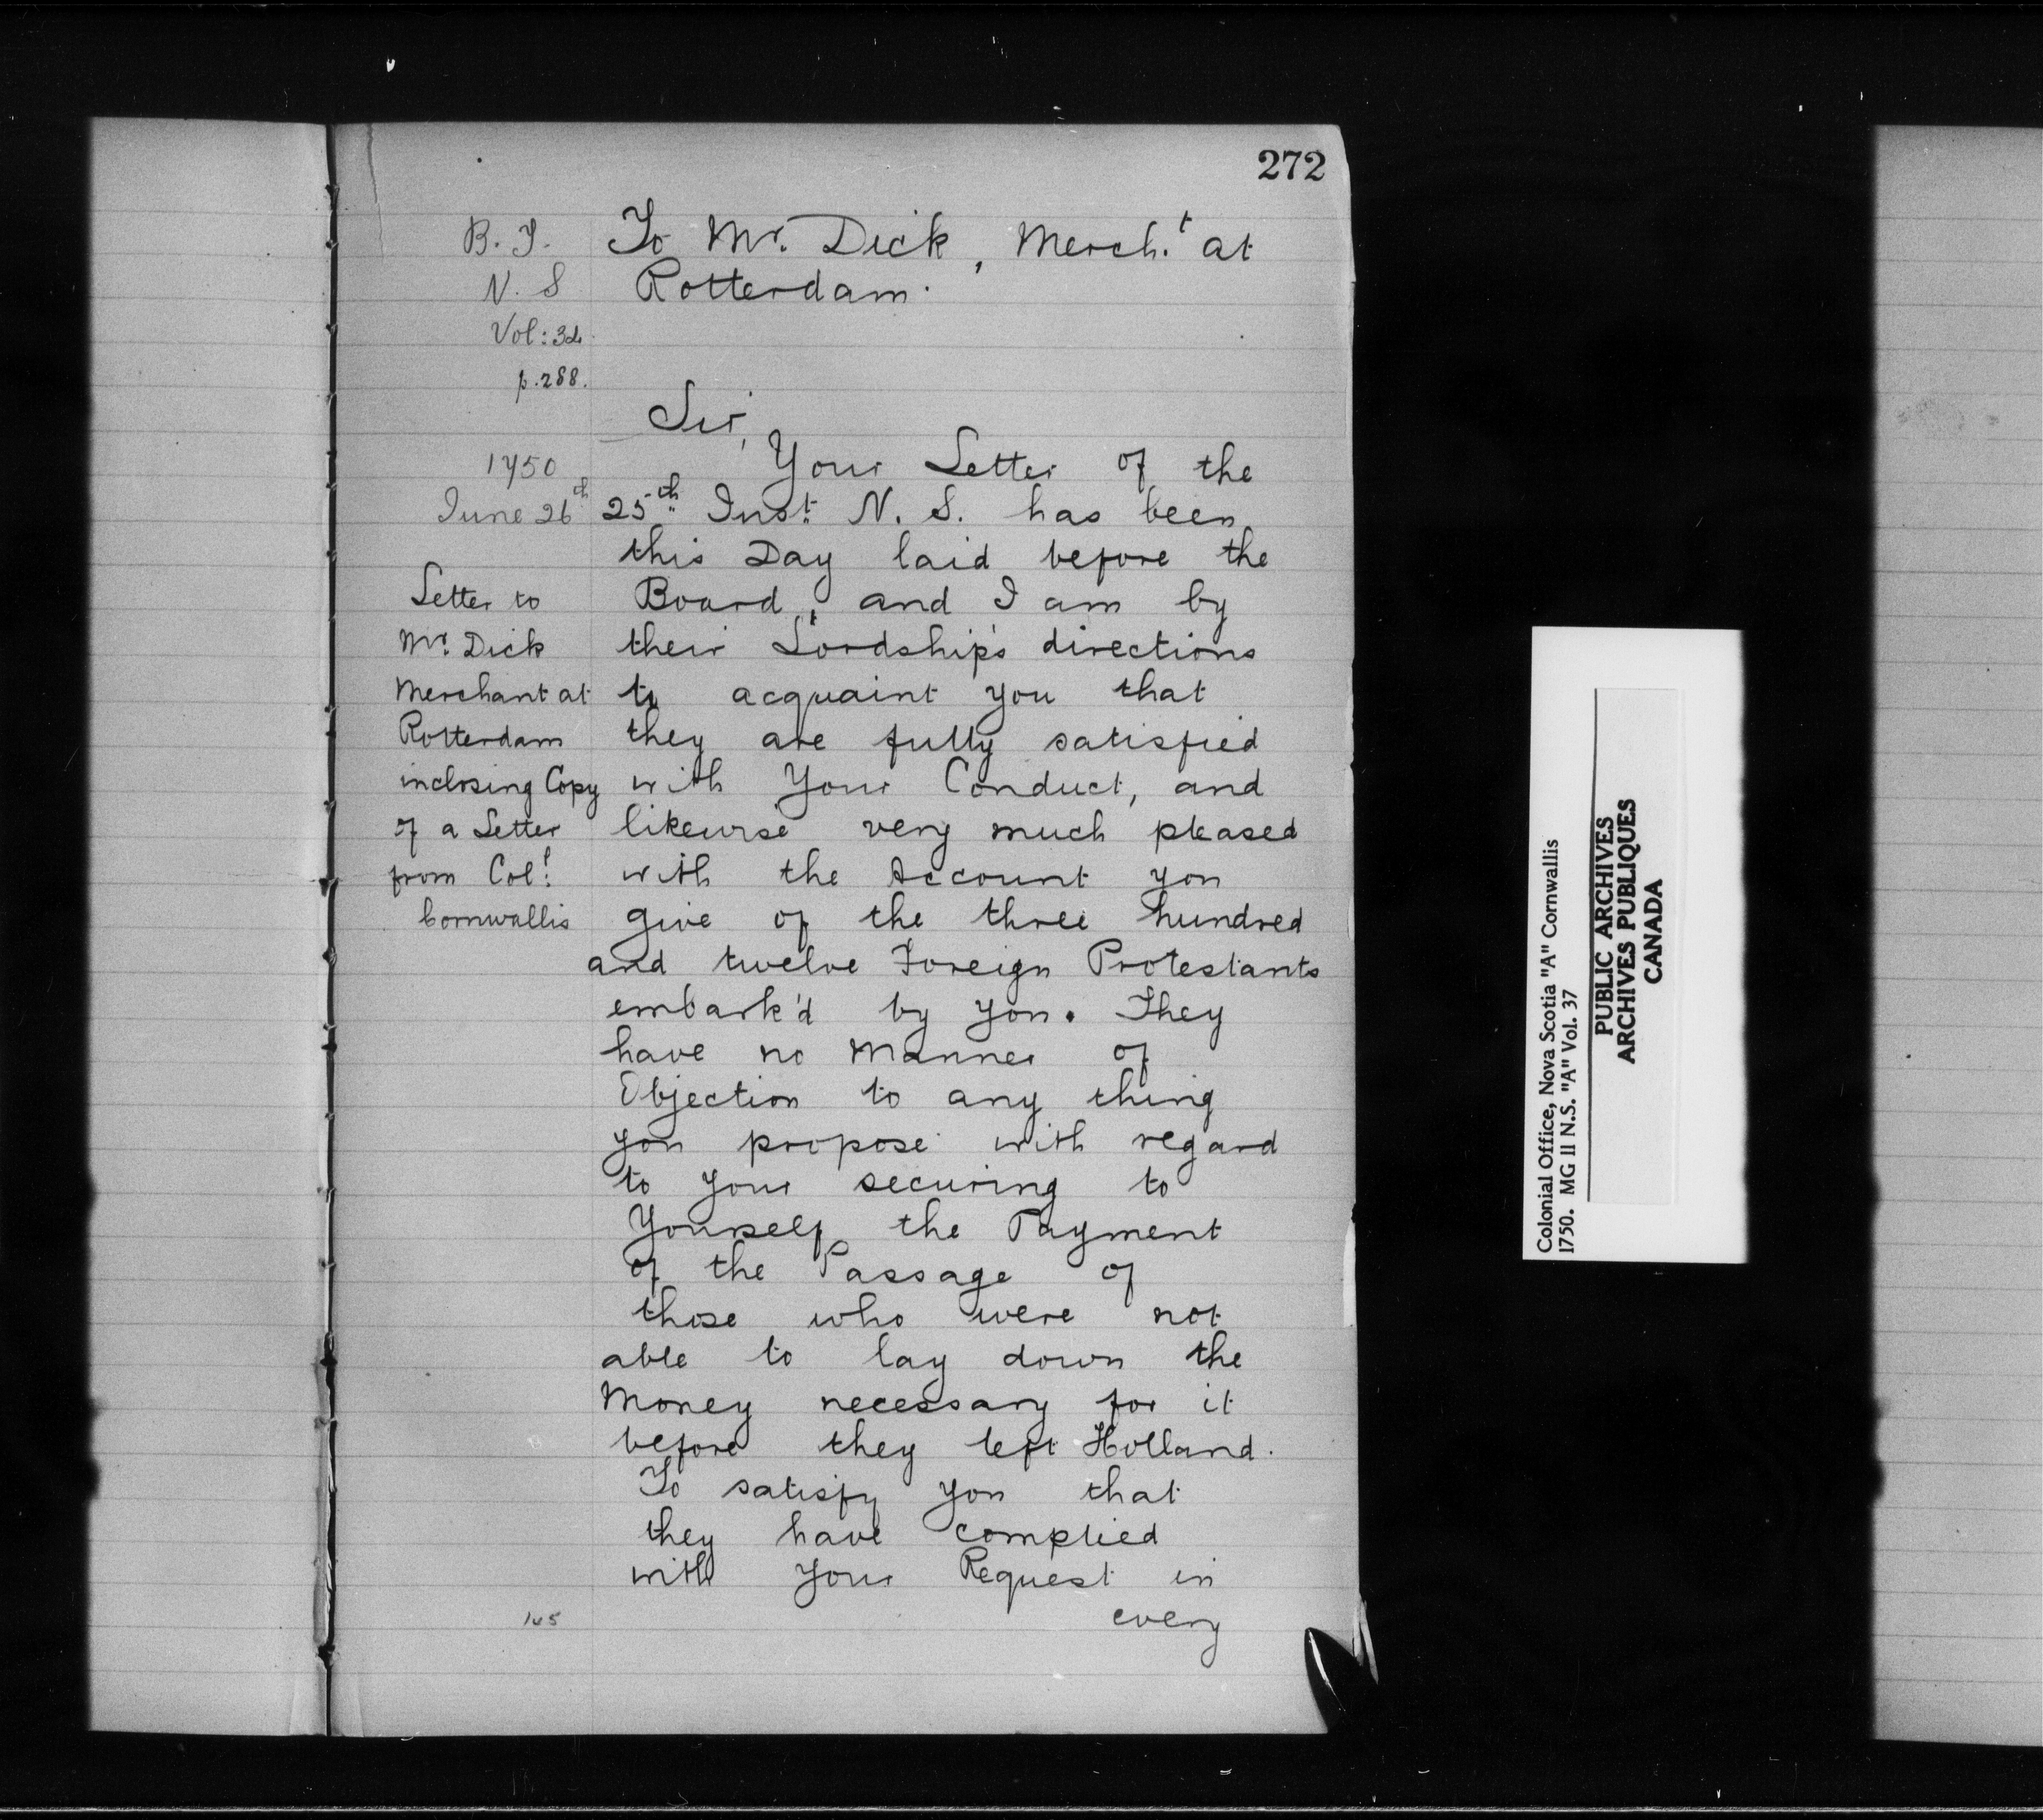 272
B. T.
N. S
Vol: 34.
p. 288.
To Mr. Dick, Merch.t at
Rotterdam.
1750
June 26th
Letter to
Mr. Dick
Merchant at
Rotterdam
inclosing Copy
of a Letter
from Col!
Cornwallis
Sir,
Your Letter of the
25th Inst. N. S. has been
this Day laid before the
Board, and I am by
their Lordship's directions
to acquaint you that
they are fully satisfied
with Your Conduct, and
likewise very much pleased
with the Account you
give of the three hundred
and twelve Foreign Protestants
embark'd by you. They
have no Manner of
Objection to any thing
you propose with regard
to your securing to
Yourself the Payment
of the Passage of
those who were not
able to lay down the
Money necessary for it
before they left Holland.
To satisfy you that
they have complied
with your Request in
every
165
Colonial Office, Nova Scotia "A" Cornwallis
1750. MG II N.S. "A" Vol. 37
PUBLIC ARCHIVES
ARCHIVES PUBLIQUES
CANADA